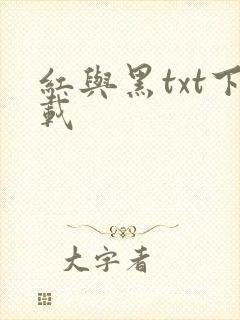 紅與黑txt下
載
大字者